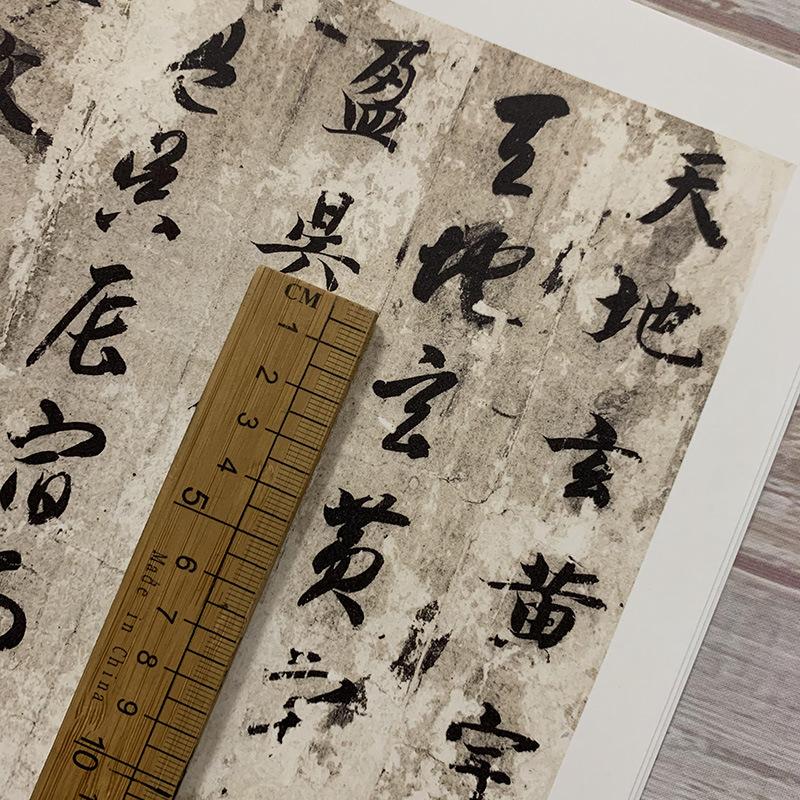 天地玄黄宇
地玄黄宇
盈昃
昃辰宿
CM
1 2 3 4 5 6 7 8 9 10
Made in China